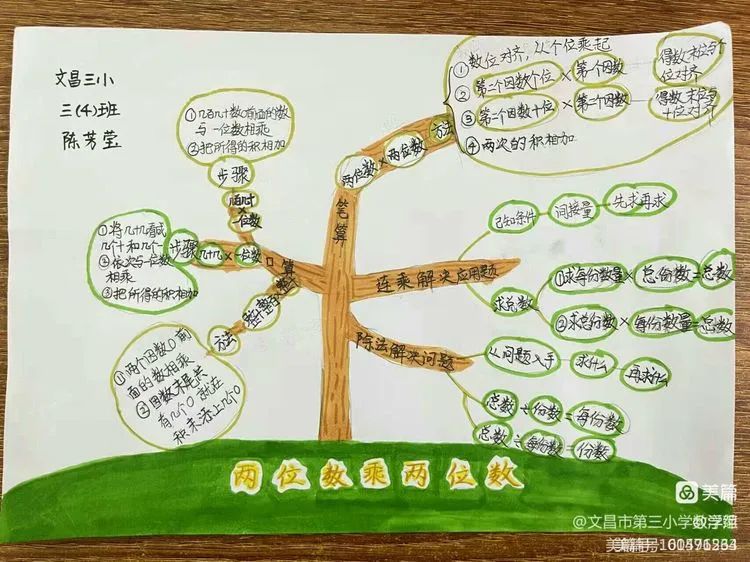 文昌三小
三(4)班
陈芳莹
①几百几十数0前面的数
与一位数相乘
②把所得的积相加
步骤
几百几十
一位数
①将几十几看成
几个十和几个一
②依次与一位数
相乘
③把所得的积相加
步骤
几十几×一位数
口算
整十整百数
方法
①两个因数0前
面的数相乘
②因数末尾共
有几个0就在
积末添上几个0
笔算
两位数×两位数
方法
①数位对齐,从个位乘起
②第二个因数个位×第一个因数 得数末位与个
位对齐
③第二个因数十位×第一个因数 得数末位与
十位对齐
④两次的积相加
连乘解决应用题
已知条件 间接量 先求再求
求总数
①求每份数量×总份数=总数
②求总份数×每份数量=总数
除法解决问题
从问题入手 求什么 再求什么
总数÷份数=每份数
总数÷每份数=份数
两位数乘两位数
美篇
@文昌市第三小学数学组